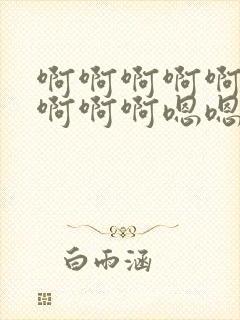 啊啊啊啊啊
啊啊啊嗯嗯
白雨涵